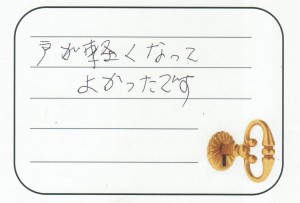 戸が軽くなって
よかったです